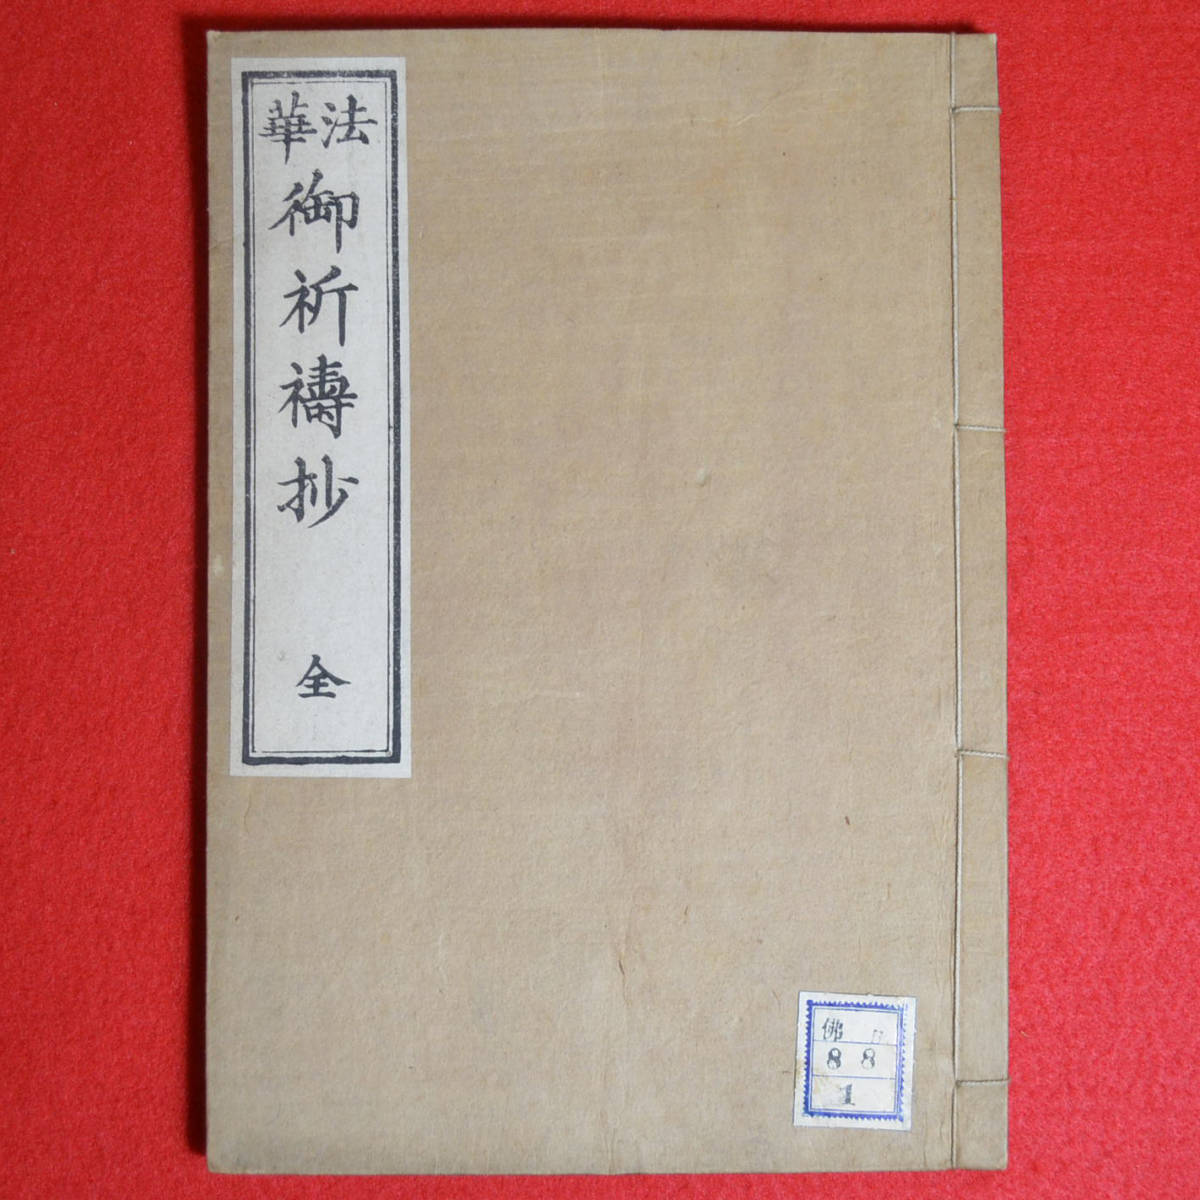 法華
御祈禱抄
全
佛
88
1